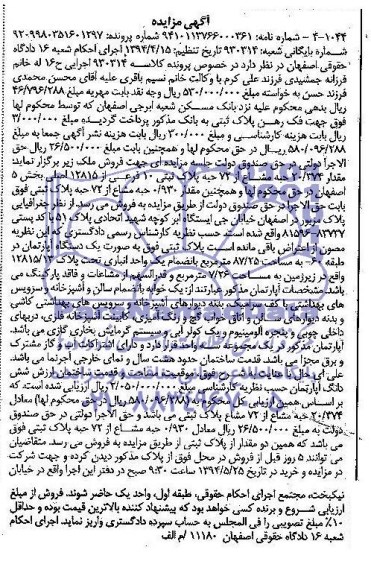 آگهی مزایده
۴-۱۰۴۴ - شماره نامه: ۹۴۱۰۱۱۳۷۶۶۰۰۰۳۶۱ شماره پرونده: ۹۲۰۹۹۸۰۳۵۱۶۰۱۲۹۷
شماره بایگانی شعبه: ۹۳۰۳۱۴ تاریخ تنظیم: ۱۳۹۴/۴/۱۵ اجرای احکام شعبه ۱۶ دادگاه
حقوقی اصفهان در نظر دارد در خصوص پرونده کلاسه ۹۳۰۳۱۴ اجرایی ح۱۶ له خانم
فرزانه جمشیدی فرزند علی کرم با وکالت خانم نسیم باقری علیه آقای محسن محمدی
فرزند حسن به خواسته مبلغ ۵۳۰/۰۰۰/۰۰۰ ریال وجه نقد بابت مهریه مبلغ ۴۶/۷۹۶/۲۸۸
ریال بدهی محکوم علیه نزد بانک مسکن شعبه ایرجی اصفهان که توسط محکوم لها
فوق جهت فک رهن پلاک ثبتی به بانک مذکور پرداخت گردیده مبلغ ۳/۰۰۰/۰۰۰
ریال بابت هزینه کارشناسی و مبلغ ۳۰۰/۰۰۰ ریال بابت هزینه نشر آگهی جمعا به مبلغ
۵۸۰/۰۹۶/۲۸۸ ریال در حق محکوم لها و همچنین بابت مبلغ ۲۶/۵۰۰/۰۰۰ ریال حق
الاجرا دولتی در حق صندوق دولت جلسه مزایده ای جهت فروش ملک زیر برگزار نماید
مقدار ۲۰/۳۷۴ مشاع از ۷۲ حبه پلاک ثبتی ۱۰ فرعی از ۱۲۸۱۵ اصلی بخش ۵
اصفهان در حق محکوم لها و همچنین مقدار ۰/۹۳۰ حبه مشاع از ۷۲ حبه پلاک ثبتی فوق
بابت حق الاجرا در حق صندوق دولت از طریق مزایده به فروش می رسد. از نظر جغرافیایی
پلاک مزبور در اصفهان خیابان جی ایستگاه ابر کوچه شهید اتحادی پلاک ۵۱ با کد پستی
واقع شده است حسب نظریه کارشناس رسمی دادگستری که این نظریه
مصون از اعتراض باقی مانده است پلاک ثبتی فوق به صورت یک دستگاه آپارتمان در
طبقه به مساحت ۸۷/۲۵ مترمربع بانضمام یک واحد انباری تحت پلاک ۱۲۸۱۵/
واقع در زیرزمین به مساحت ۷/۲۶ مترمربع و قدرالسهم از مشاعات و فاقد پارکینگ می
باشد مشخصات آپارتمان مذکور عبارتند از: یک خوابه بانضمام سالن و آشپزخانه و سرویس
های بهداشتی با کف سرامیک، بدنه دیوارهای آشپزخانه و سرویس های بهداشتی کاشی
و بدنه دیوارهای سالن و اتاق خواب گچ و رنگ آمیزی کابینت آشپزخانه فلزی، دربهای
داخلی چوبی و پنجره آلومینیوم و یک کولر آبی و سیستم گرمایش بخاری گازی می باشد.
آپارتمان مذکور در یک مجموعه واحد قرار دارد و دارای اشتراکات آب و گاز مشترک
و برق مجزا می باشد. قدمت ساختمان حدود هشت سال و نمای خارجی آجرنما می باشد.
علی ای حال با عنایت به شرح فوق، موقعیت، مساحت و قدمت ساختمان ارزش شش
دانگ آپارتمان حسب نظریه کارشناسی مبلغ ۲/۰۵۰/۰۰۰/۰۰۰ ریال ارزیابی شده است. که
بر اساس همین ارزیابی کل محکوم به ۵۸۰/۰۹۶/۲۸۸ ریال (در حق محکوم لها) معادل
۲۰/۳۷۴ حبه مشاع از ۷۲ مشاع پلاک ثبتی می باشد و حق الاجرا دولتی در حق صندوق
دولت به مبلغ ۲۶/۵۰۰/۰۰۰ ریال معادل ۰/۹۳۰ حبه مشاع از ۷۲ حبه پلاک ثبتی فوق
می باشد که همین دو مقدار از پلاک ثبتی از طریق مزایده به فروش می رسد. متقاضیان
می توانند ۵ روز قبل از فروش در محل فوق از پلاک مذکور دیدن کرده و جهت شرکت
در مزایده و خرید در تاریخ ۱۳۹۴/۵/۲۵ ساعت ۹:۳۰ صبح در دفتر این اجرا واقع در خیابان
نیکبخت، مجتمع اجرای احکام حقوقی، طبقه اول، واحد یک حاضر شوند. فروش از مبلغ
ارزیابی شروع و برنده کسی خواهد بود که پیشنهاد کننده بالاترین قیمت بوده و حداقل
۱۰٪ مبلغ تصویبی را فی المجلس به حساب سپرده دادگستری واریز نماید. اجرای احکام
شعبه ۱۶ دادگاه حقوقی اصفهان ۱۱۱۸۰ /م الف